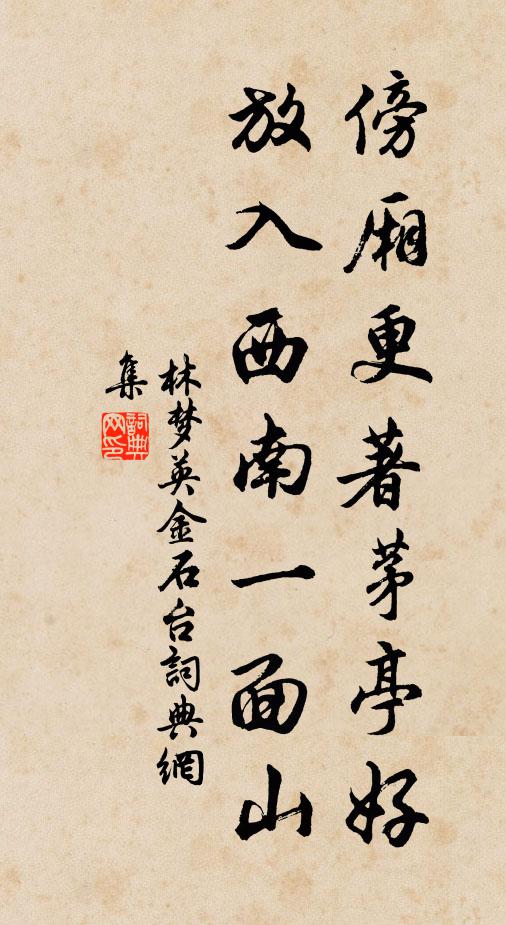 傍廂更著茅亭好
放入西南一面山
林梦英金石台詞典網
集
詞典
网印